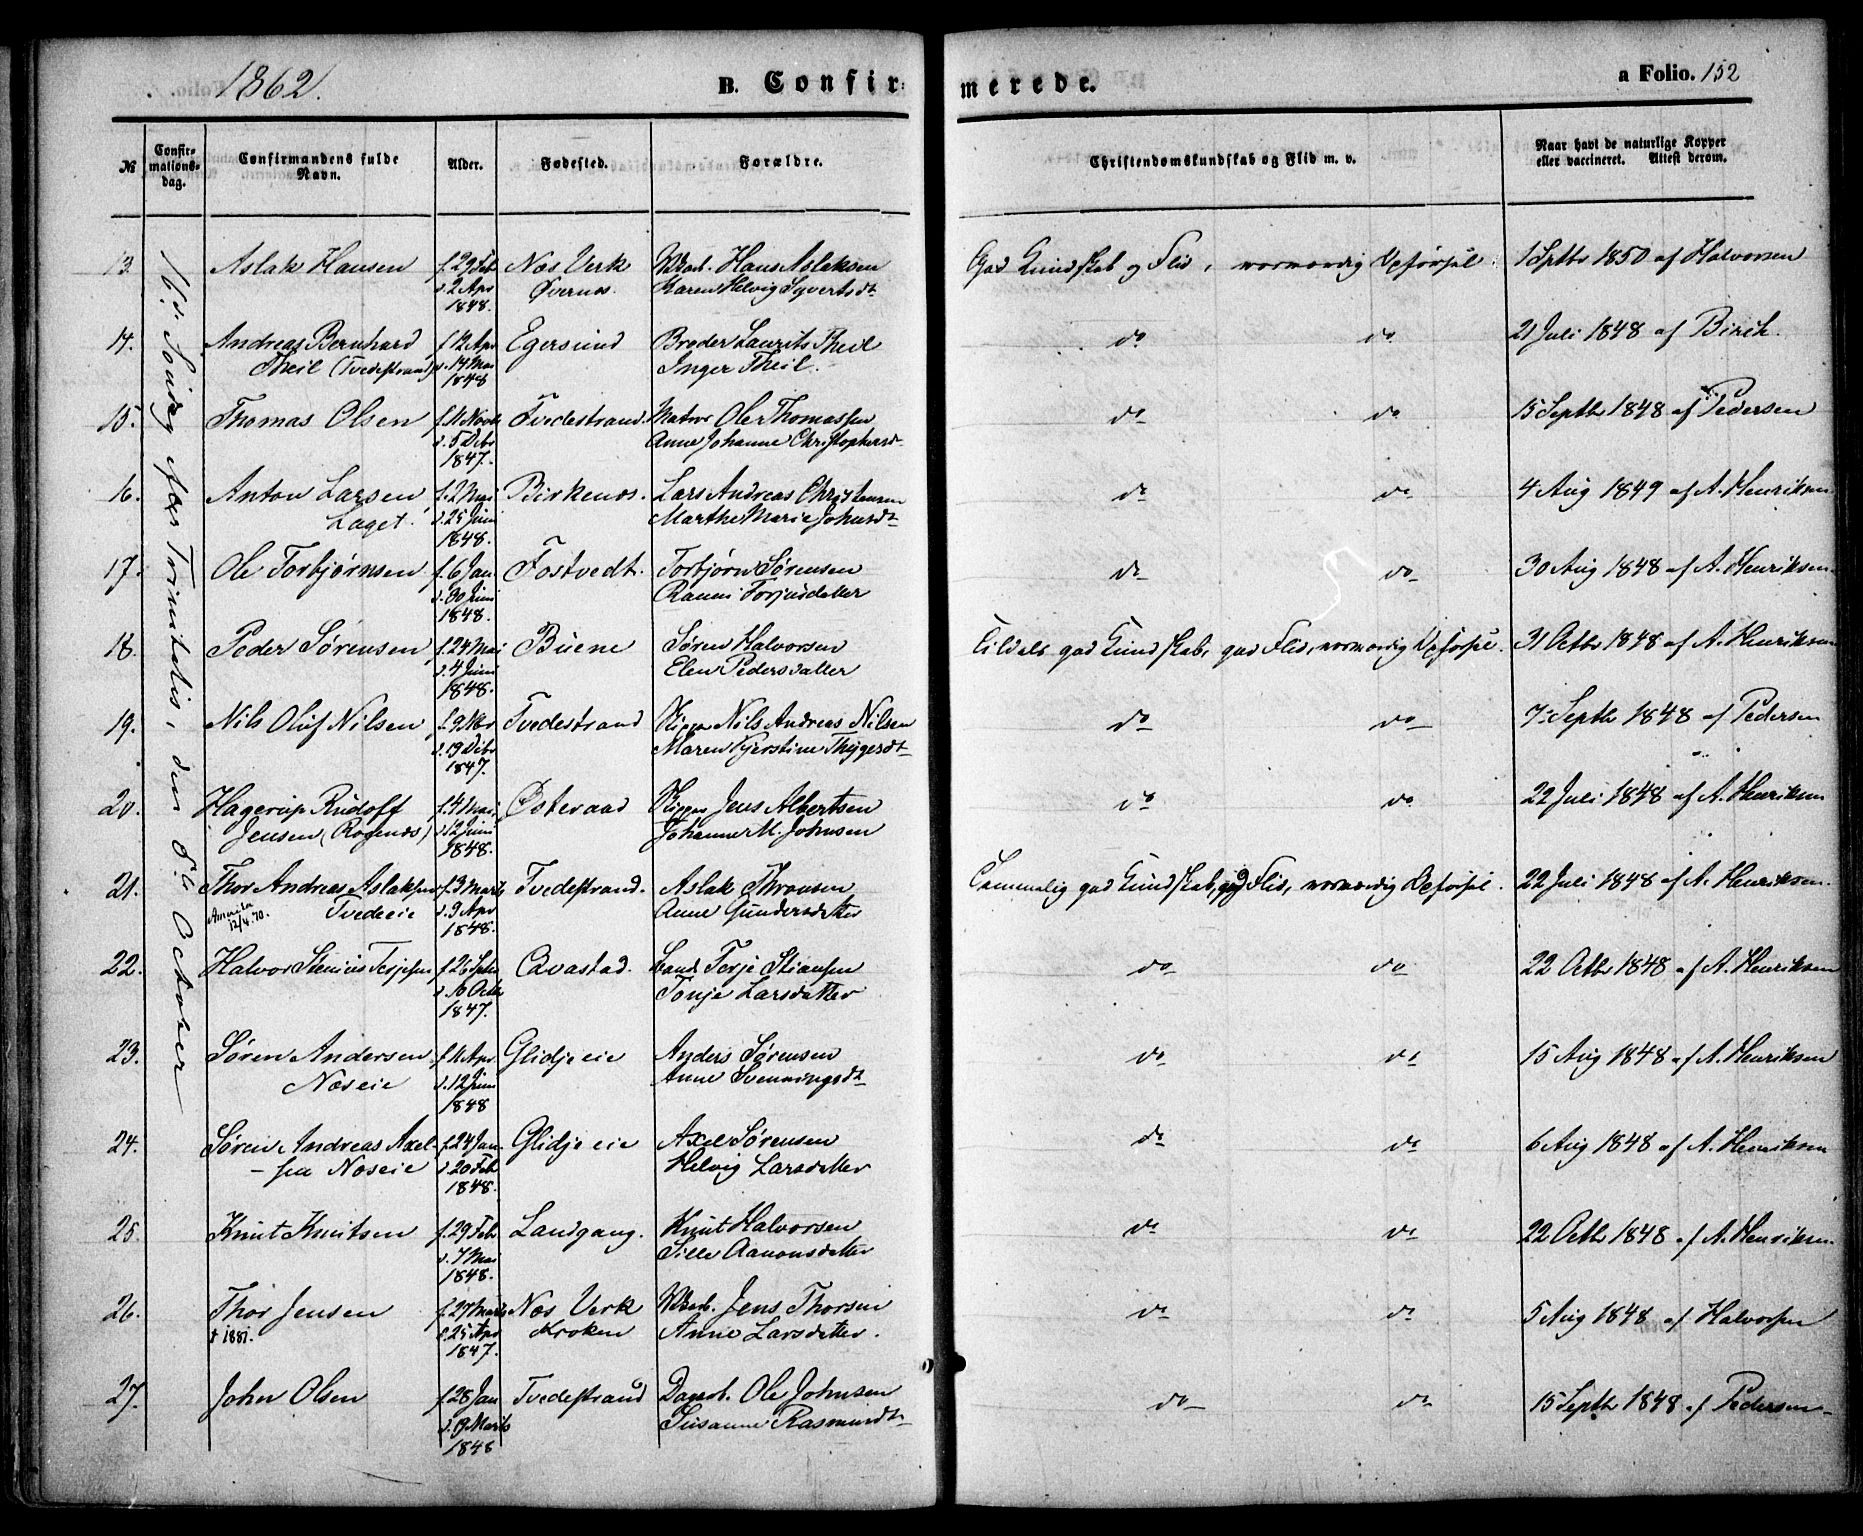 1862.
B. Confirmerede.
a Folio. 152
№
Confirmationsdag.
Confirmandens fulde Navn.
Alder.
Fødested.
Forældre.
Christendomskundskab og Flid m. v.
Naar havt de naturlige Kopper eller vaccineret. Attest derom.
16de Søndag efter Trinitatis, den 5te October
13. Aslak Hansen f. 29 Feb Næs Verk Hans Aslaksen God Kundskab og Flid, Opførsel 1 Septbr 1850 af Halvorsen
d. 2 Apr Øvernes. Karen Helvig Syvertsdt
1848.
14. Andreas Bernhard f. 12 Apr Egersund Broder Laurits Theil do do 21 Juli 1848 af Birch.
Theil (Tvedestrand) d. 14 Mai Inger Theil.
1848
15. Thomas Olsen f. 11 Novb Tvedestrand. Matros Ole Thomassen do do 15 Septbr 1848 af Pedersen
d. 5 Debr Anne Johanne Christophersdt
1847.
16. Anton Larsen f. 2 Mai Birkenes. Lars Andreas Christensen do do 4 Aug 1849 af A. Henriksen
Laget. d. 25 Juni Marthe Marie Johnsdt
1848.
17. Ole Torbjørnsen f. 6 Jan Fostvedt. Torbjørn Sørensen do do 30 Aug 1848 af A. Henriksen
d. 30 Juni Ranni Torjusdatter
1848.
18. Peder Sørensen f. 24 Mai Buene Søren Halvorsen Tildels god Kundskab, god Flid, Opførsel. 31 Octbr 1848 af A. Henriksen
d. 4 Juni Elen Pedersdatter
1848.
19. Nils Oluf Nilsen f. 9 Nbr Tvedestrand Skipper Nils Andreas Nilsen do do 7 Septbr 1848 af Pedersen
d. 19 Debr Maren Kjerstine Thygesdt
1847.
20. Hagerup Rudolf f. 4 Mai Østeraad Skipper Jens Albertsen do do 22 Juli 1848 af A. Henriksen
Jensen (Rogenæs) d. 12 Juni Johanne M. Johnsen
1848.
21. Thor Andreas Aslaksen f. 3 Marts Tvedestrand. Aslak Thronsen Temmelig god Kundskab, god Flid, Opførsel. 22 Juli 1848 af A. Henriksen.
Amerika 12/4 70. Tvedeeie d. 9 Apr Anne Gundersdatter
1848.
22. Halvor Stenius Terjesen f. 26 Septbr Qvastad. Terje Stiansen do do 22 Octbr 1848 af A. Henriksen
d. 10 Octbr Tonje Larsdatter
1847.
23. Søren Andersen f. 11 Apr Glidjeeie Anders Sørensen do do 15 Aug 1848 af A. Henriksen
Næseie d. 12 Juni Anne Svenningsdt
1848
24. Søren Andreas Axel- f. 24 Jan Glidjeeie Axel Sørensen do do 6 Aug 1848 af A. Henriksen
-sen Næseie d. 20 Feb Helvig Larsdatter
1848.
25. Knut Knutsen f. 29 Feb Landgang. Knut Halvorsen do do 22 Octbr 1848 af A. Henriksen
d. 7 Mai Sille Aanonsdatter
1848.
26. Thor Jensen f. 27 Marts Næs Verk Jens Thorsen do do 5 Aug 1848 af Halvorsen
† 1881. d. 25 Apr Kroken Anne Larsdatter.
1847.
27. John Olsen f. 28 Jan Tvedestrand Ole Johnsen do do 15 Septbr 1848 af Pedersen
d. 19 Marts Susanne Rasmusdt
1848